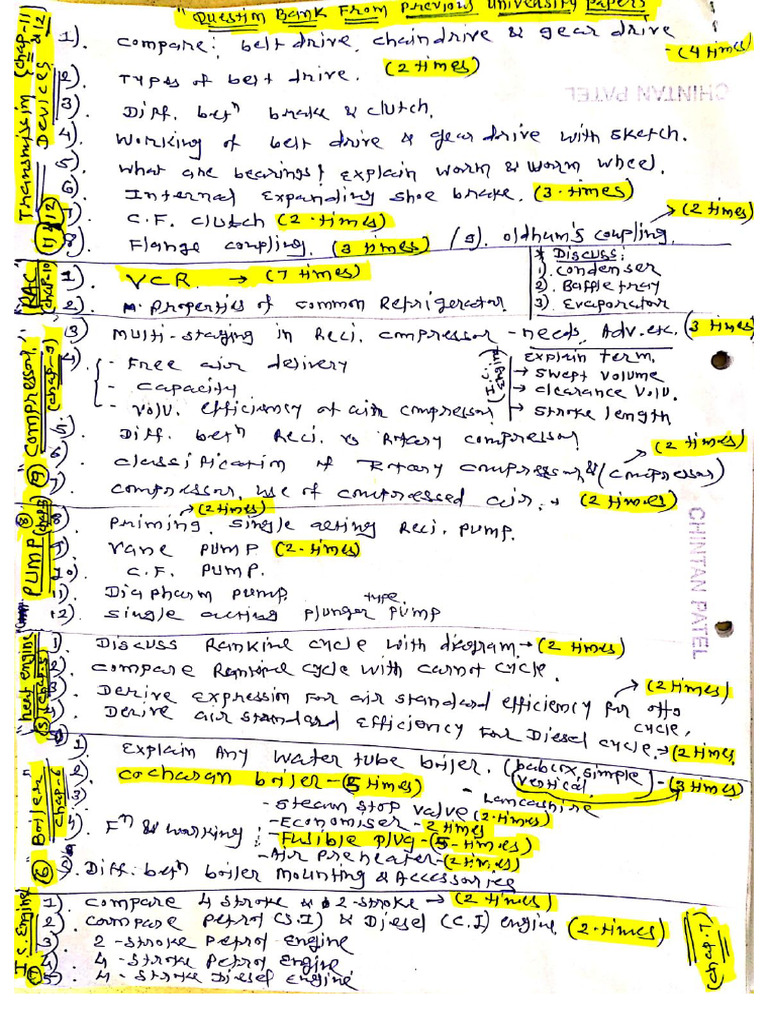 "Question Bank From Previous University Papers"
Transmission Devices (chap-11 & 12)
11 & 12
1). Compare: belt drive, chain drive & gear drive - (4 times)
2). Types of belt drive. (2 times)
3). Diff. betn brake & clutch.
4). Working of belt drive & gear drive with sketch.
5). What are bearings? Explain worm & worm wheel.
6). Internal Expanding shoe brake. (3 times)
7). C.F. clutch (2 times)
8). Flange coupling. (3 times) / 9). Oldham's Coupling. → (2 times)
"RAC" chap-10
1). VCR. → (7 times)
2). Properties of Common Refrigerator
* Discuss:
1). Condenser
2). Baffle tray
3). Evaporator
"Compressors" (chap-9) 9
3) Multi-staging in Reci. compressor - needs, Adv. etc. (3 times)
4). - Free air delivery
- capacity
- Volu. efficiency of air compressor
Explain term.
→ swept volume
→ clearance Volu.
→ stroke length
5. Diff. betn Reci. vs Rotary compressor
6). classification of Rotary compressor & (compressor) → (2 times)
7). compressor, use of compressed air. → (2 times)
PUMP (chap-8) 8
8). Priming, single acting Reci. pump. → (2 times)
9). Vane pump (2 times)
10). C.F. pump.
11). Diapharm pump
12). Single acting plunger type pump
"heat engine" 5 (chap-5)
1). Discuss Rankine cycle with diagram → (2 times)
2). Compare Rankine cycle with carnot cycle.
3). Derive expression for air standard efficiency for otto cycle. → (2 times)
4). Derive air standard efficiency for Diesel cycle. → (2 times)
"Boiler" chap-6 6
1). Explain Any water tube boiler. (babcox, simple vertical) - (3 times)
2). Cocharan boiler - (5 times) - Lancashire
3).
4). Fn & working: - steam stop valve (2 times)
- Economiser - 2 times
- Fusible plug - (5 times)
- Air preheater - (2 times)
5). Diff. betn boiler mounting & Accessories
I.C. Engine 7 (chap. 7)
1). Compare 4 stroke & 2-stroke → (2 times)
2). Compare petrol (S.I) & Diesel (C.I) engine (2 times)
3). 2-stroke petrol engine
4). 4-stroke petrol engine
5). 4-stroke Diesel engine
CHINTAN PATEL
CHINTAN PATEL